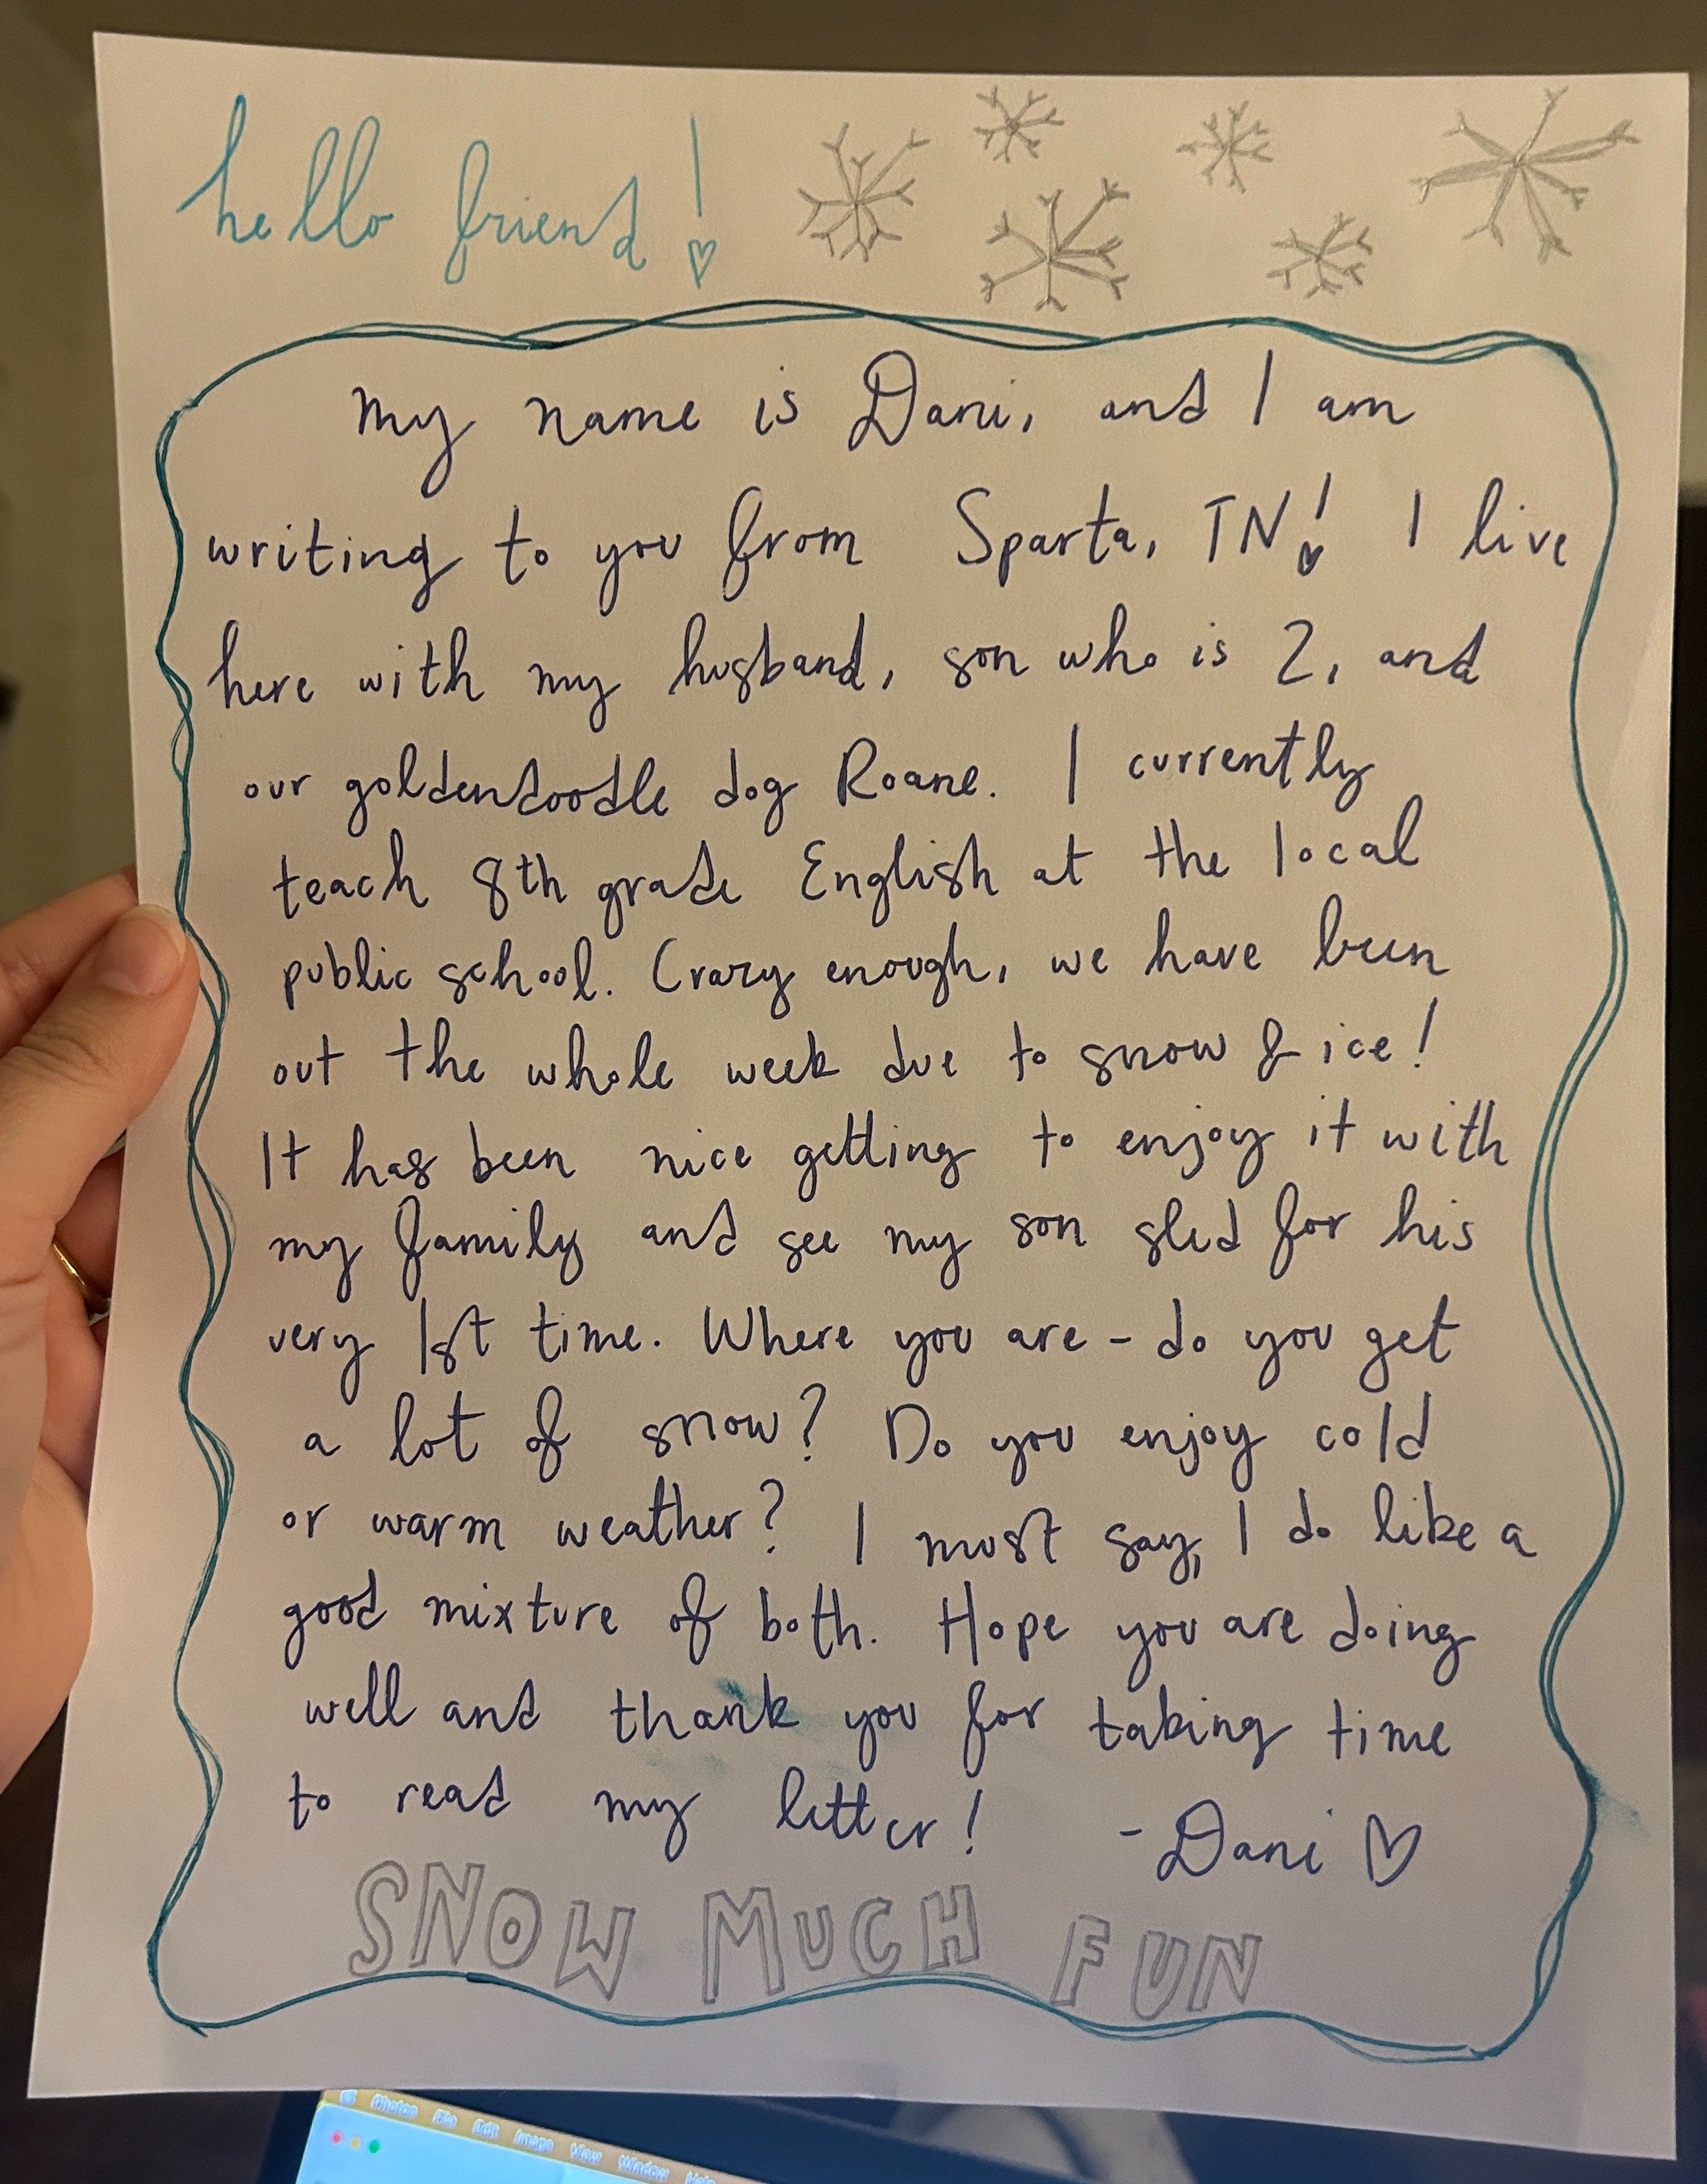 hello friend!
My name is Dani, and I am
writing to you from Sparta, TN! I live
here with my husband, son who is 2, and
our goldendoodle dog Roane. I currently
teach 8th grade English at the local
public school. Crazy enough, we have been
out the whole week due to snow & ice!
It has been nice getting to enjoy it with
my family and see my son sled for his
very 1st time. Where you are - do you get
a lot of snow? Do you enjoy cold
or warm weather? I must say, I do like a
good mixture of both. Hope you are doing
well and thank you for taking time
to read my letter! - Dani ♡
SNOW MUCH FUN
Photos File Edit Image View Window Help